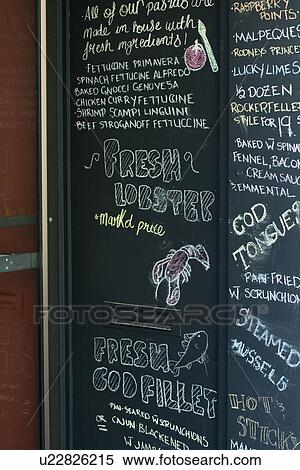 All of our pastas are
made in house with
fresh ingredients!
FETTUCINE PRIMAVERA
SPINACH FETTUCINE ALFREDO
BAKED GNOCCI GENOVESA
CHICKEN CURRY FETTUCINE
SHRIMP SCAMPI LINGUINI
BEEF STROGANOFF FETTUCCINE
FRESH
LOBSTER
mark'd price
FRESH
COD FILLET
PAN-SEARED W/SPUNCHIONS
OR CAJUN BLACKENED
RASPBERRY
POINTS
MALPEQUES
RODNEYS PRINCE
LUCKY LIMES
½ DOZEN
ROCKERFELLER
STYLE FOR 19
BAKED W/ SPIN
FENNEL, BACON
CREAM SAUC
EMMENTAL
COD
TONGUE
PAN FRIED
W SCRUNCHION
STEAMED
MUSSELS
HOT
STICKY
DAMN
© Fotosearch.com
u22826215 www.fotosearch.com